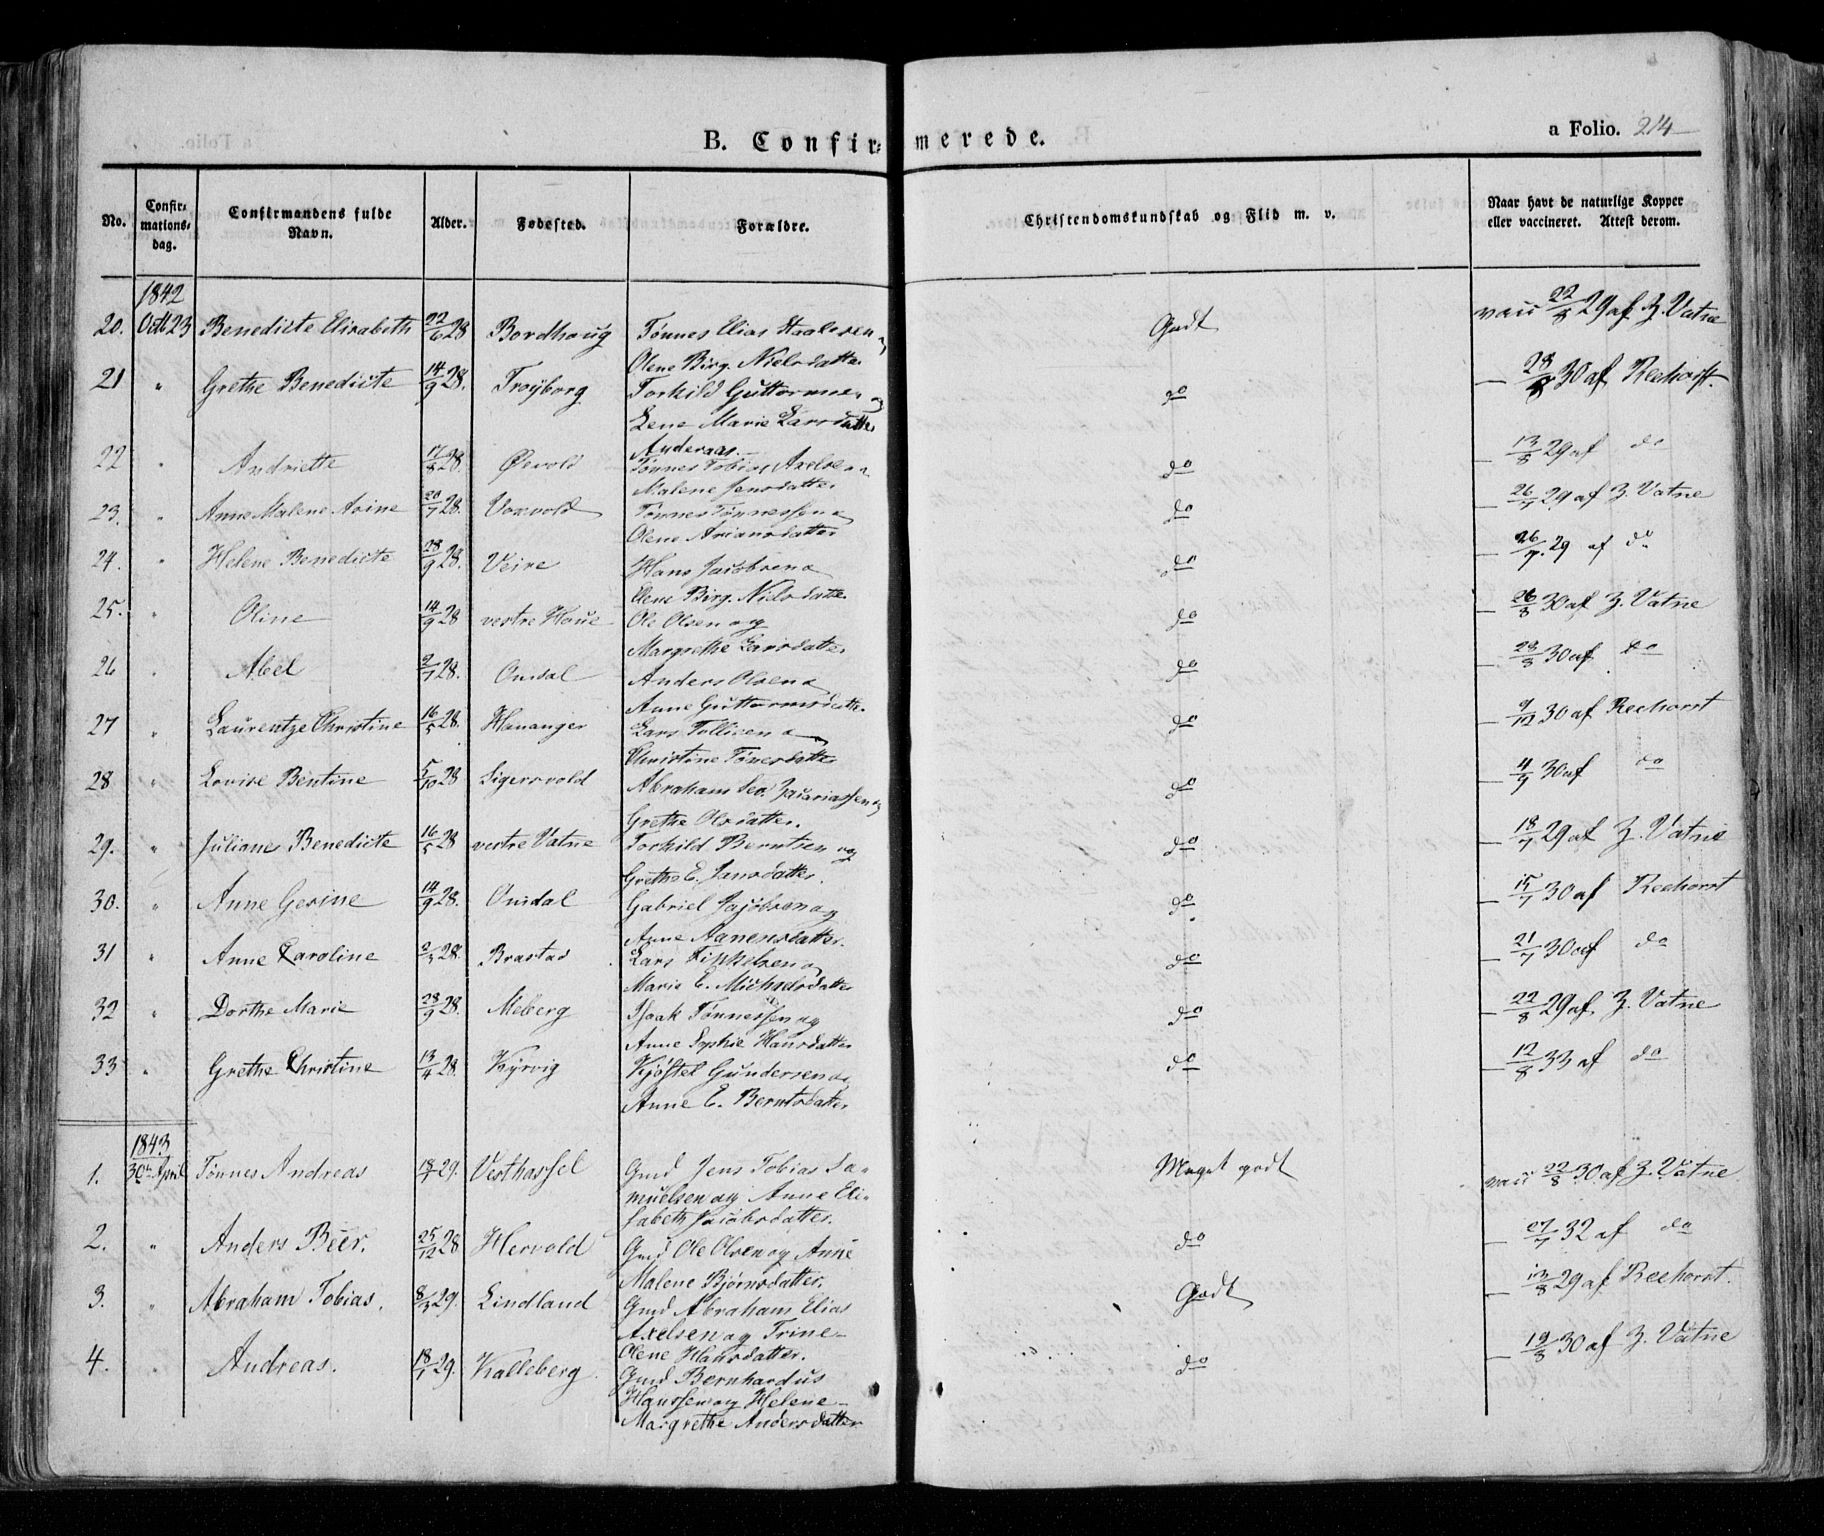 B. Confirmerede.
a Folio. 214
No.
Confirmationsdag.
Confirmandens fulde Navn.
Alder.
Fødested.
Forældre.
Christendomskundskab og Flid m. v.
Naar havt de naturlige Kopper eller vaccineret. Attest derom.
1842
20. Octb 23 Benedicte Elisabeth 22/6 28 Bordhaug Tønnes Elias Staalesen Godt vacc 22/8 29 af Z. Vatne
Olene Birg. Nielsdatter
21 " Grethe Benedicte 14/9 28. Troÿborg Torkild Guttorms. og do — 30 af Reehorst.
Lene Marie Larsdatter
Anderaas.
22 " Andriette 17/8 28. Øevold Tønnes Tobias Axelsen do — 13/8 29 af do
Malene Jensdatter
23. " Anne Malene Asine 20/7 28. Voxvold Tønnes Tønnessen do — 26/7 29 af Z. Vatne
Olene Ariansdatter
24. " Helene Benedicte 28/9 28. Veire Hans Jacobsen do — 26/7 29 af do
Elene Birg. Nielsdatter
25. " Oline 14/9 28 vestre Haue Ole Olsen og do — 26/8 30 af Z. Vatne
Margrethe Larsdatter
26 " Abel 2/7 28. Omdal Anders Olsen do — 23/8 30 af do
Anne Guttormsdatter
27 " Laurentze Christine 16/5 28. Hananger Lars Tollisen do — 9/12 30 af Reehorst
Christine Tønesdatter
28 " Lovise Bentine 5/10 28 Sigersvold Abraham Seo. Zacariassen og do — 4/9 30 af do
Grethe Olsdatter.
29. " Juliane Benedicte 16/5 28 vestre Vatne Torkild Berntsen og do — 18/7 29 af Z. Vatne
Grethe E. Jansdatter.
30. " Anne Gesine 14/9 28. Omdal Gabriel Jacobsen og do — 15/7 30 af Reehorst
Anne Aanensdatter.
31 " Anne Caroline 28. Brastad Lars Tipkelsen do — 21/7 30 af do
Marie E. Michelsdatter
32 " Dorthe Marie 28/9 28. Meberg Isaak Tønnessen og do — 22/8 29 af Z. Vatne
Anne Sophie Hansdatter
33 " Grethe Christine 13/4 28. Kÿrvig Kjøstel Gundersen do — 12/8 33 af do
Anne E. Berntsdatter
1843
1. 30te April Tønnes Andreas 29. Vesthassel Gmd Jens Tobias Sa- Meget godt vacc 22/8 30 af Z. Vatne
muelsen og Anne Eli-
sabeth Jacobsdatter.
2. " Anders Beer. 25/12 28 Hervold Gmd Ole Olsen og Anne do — 27/7 32 af do
Malene Bjørnsdatter.
3. " Abraham Tobias. 8/3 29. Lindland Gmd Abraham Elias Godt — 13/8 29 af Reehorst.
Axelsen og Trine
Olene Hansdatter.
4. " Andreas. 18/1 29. Kalleberg Gmd Bernhardus do — 19/8 30 af Z. Vatne
Hanssen og Helene
Margrethe Andersdatter